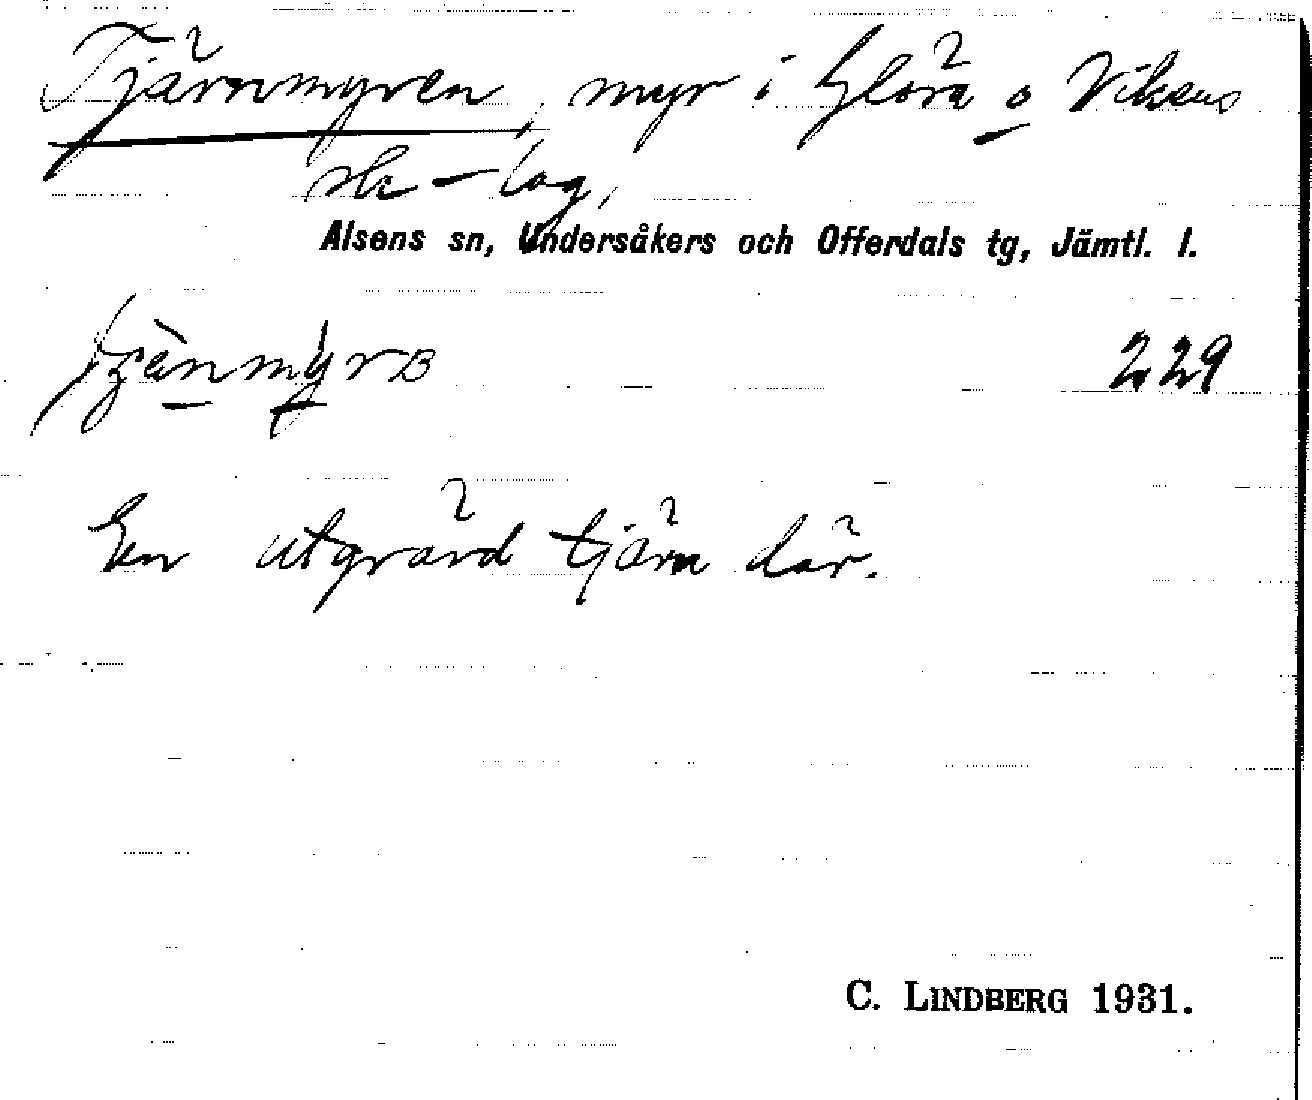 Tjärnmyren, myr i Glösa o Vikens
sk-lag,
Alsens sn, Undersåkers och Offerdals tg, Jämtl. l.
229
En utgrävd tjärn där.
C. LINDBERG 1931.